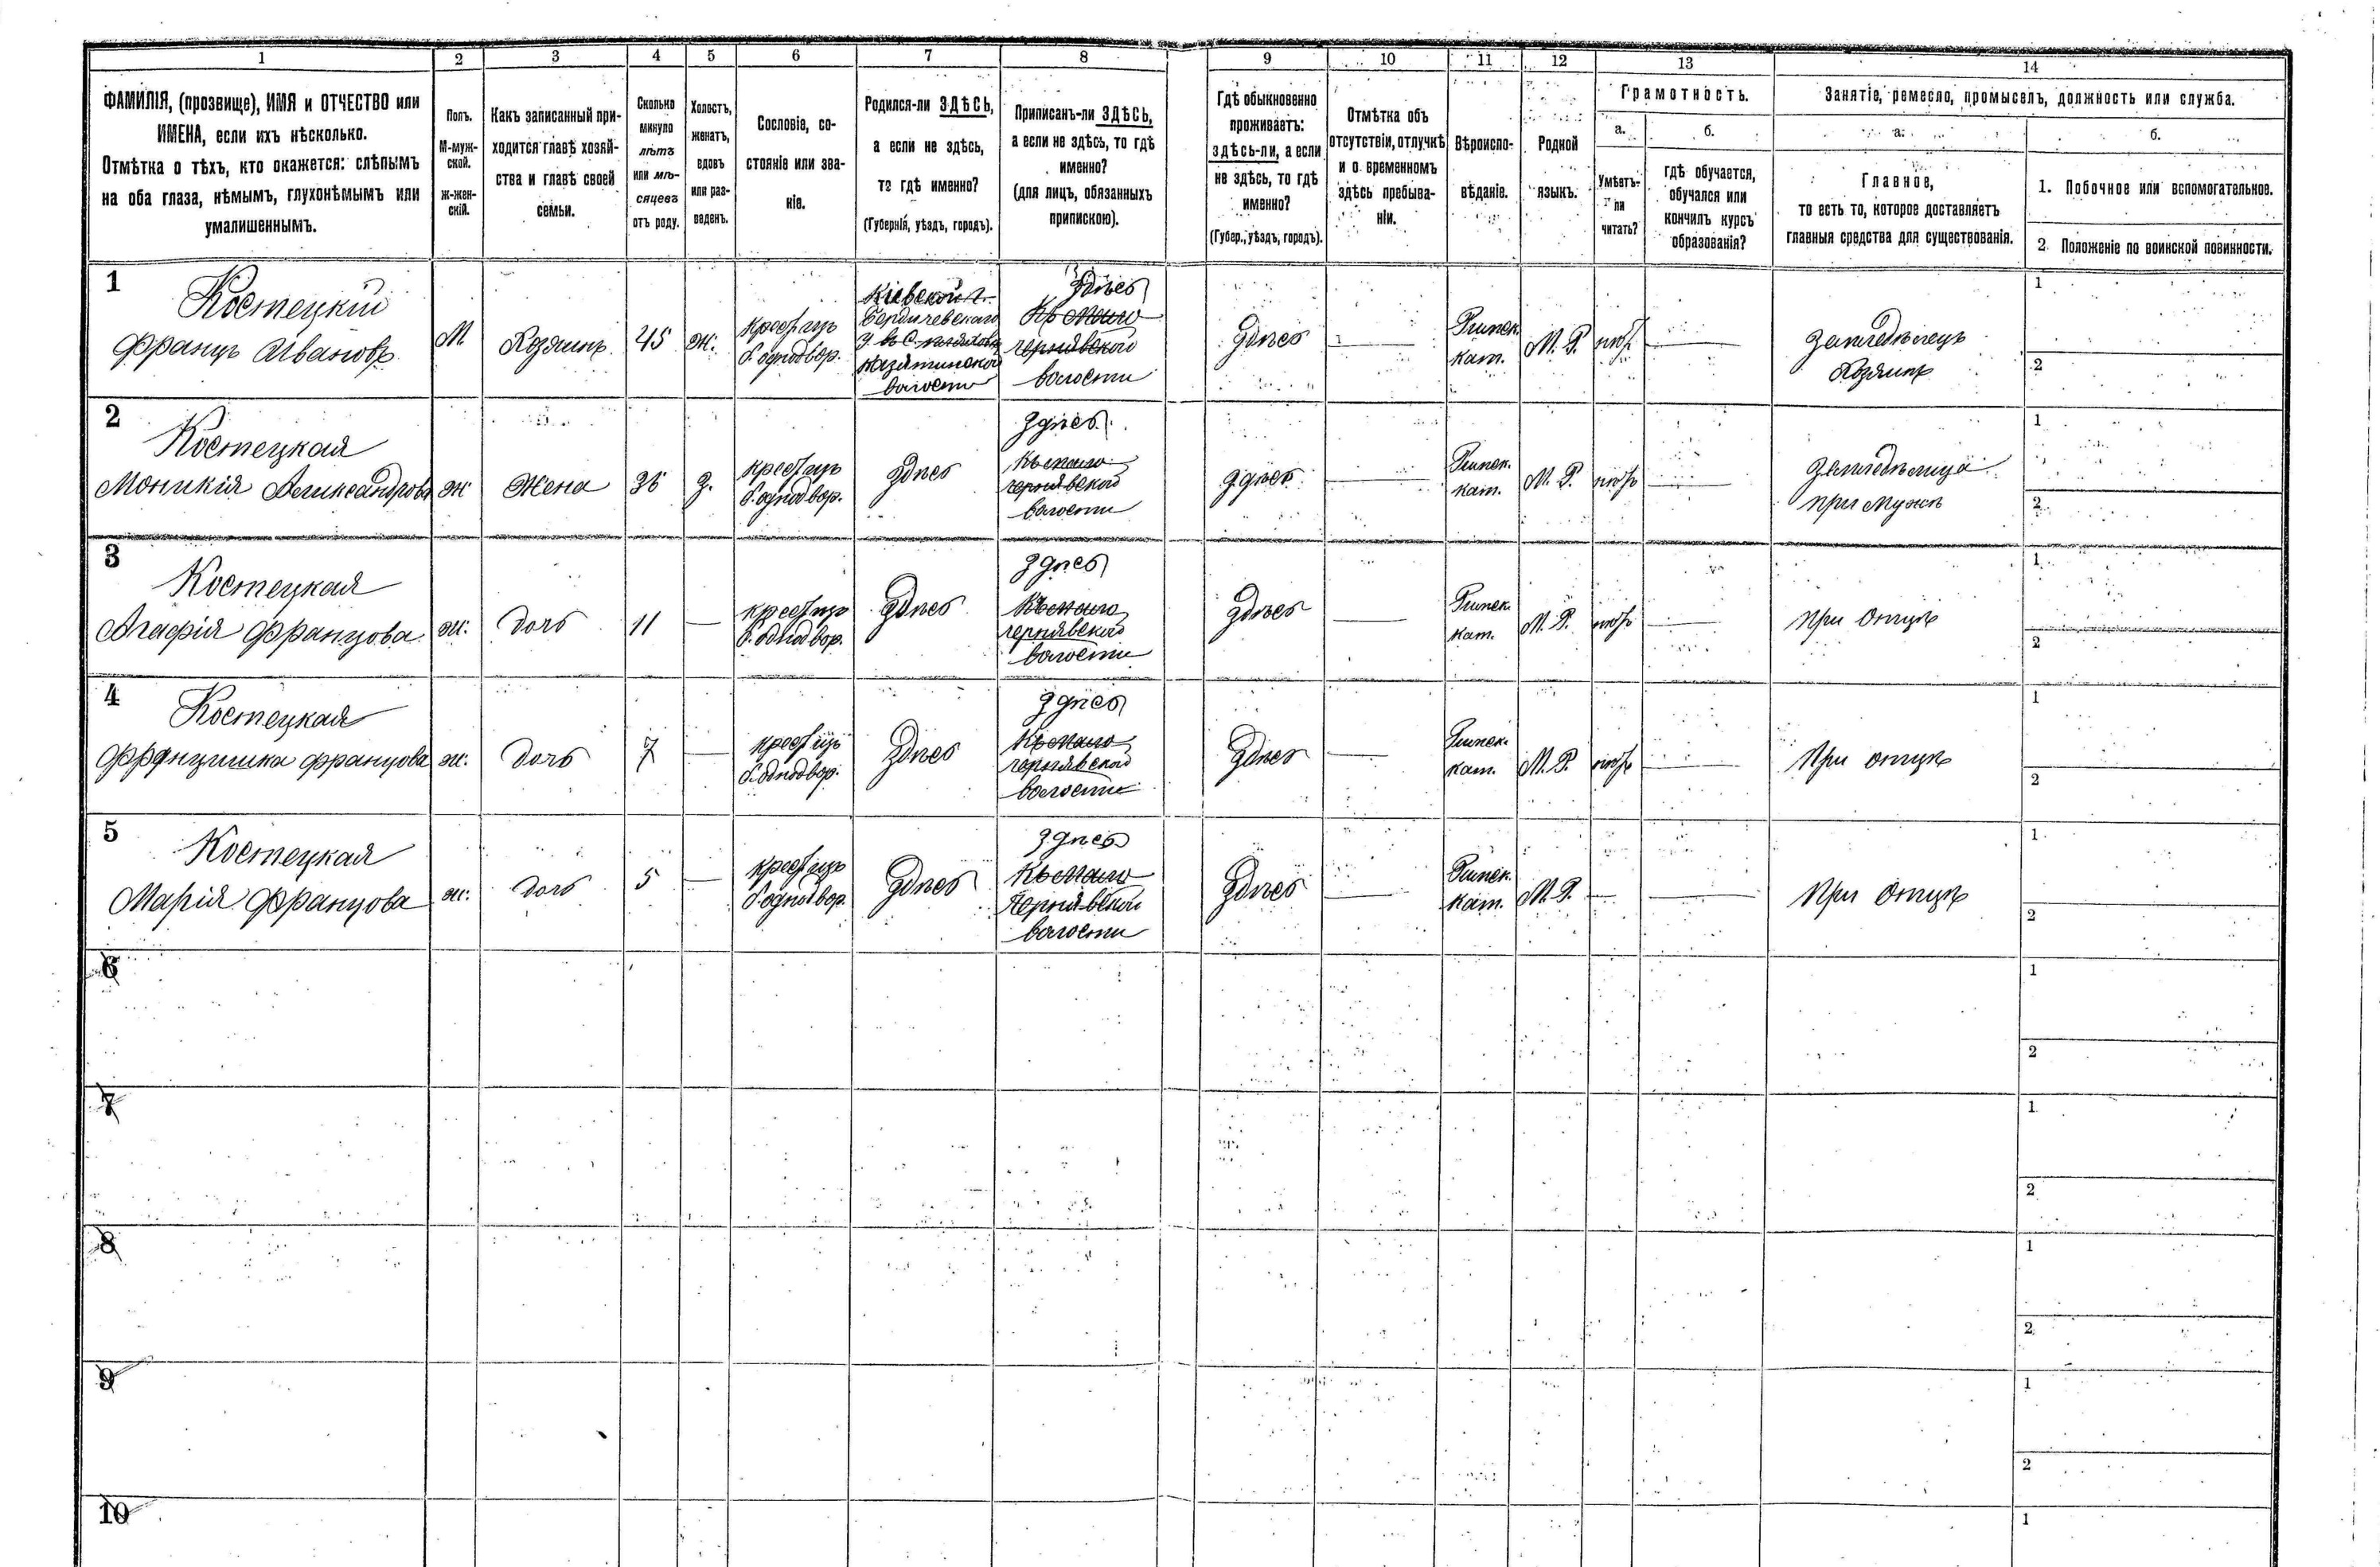 1 2 3 4 5 6 7 8 9 10 11 12 13 14
ФАМИЛІЯ, (прозвище), ИМЯ и ОТЧЕСТВО или
ИМЕНА, если ихъ нѣсколько.
Отмѣтка о тѣхъ, кто окажется: слѣпымъ
на оба глаза, нѣмымъ, глухонѣмымъ или
умалишеннымъ.
Полъ.
М-муж-
ской.
ж-жен-
скій.
Какъ записанный при-
ходится главѣ хозяй-
ства и главѣ своей
семьи.
Сколько
минуло
лѣтъ
или мѣ-
сяцевъ
отъ роду.
Холостъ,
женатъ,
вдовъ
или раз-
веденъ.
Сословіе, со-
стояніе или зва-
ніе.
Родился-ли ЗДѢСЬ,
а если не здѣсь,
то гдѣ именно?
(Губернія, уѣздъ, городъ).
Приписанъ-ли ЗДѢСЬ,
а если не здѣсь, то гдѣ
именно?
(для лицъ, обязанныхъ
припискою).
Гдѣ обыкновенно
проживаетъ:
здѣсь-ли, а если
не здѣсь, то гдѣ
именно?
(Губер., уѣздъ, городъ).
Отмѣтка объ
отсутствіи, отлучкѣ
и о временномъ
здѣсь пребыва-
ніи.
Вѣроиспо-
вѣданіе.
Родной
языкъ.
Грамотность.
а.
Умѣетъ-
ли
читать?
б.
гдѣ обучается,
обучался или
кончилъ курсъ
образованія?
Занятіе, ремесло, промыселъ, должность или служба.
а.
Главное,
то есть то, которое доставляетъ
главныя средства для существованія.
б.
1. Побочное или вспомогательное.
2 Положеніе по воинской повинности.
1
Костецкій
Францъ Ивановъ
М
Хозяинъ
45
ж.
б. однодвор.
Кіевской г.
Бердичевскаго
Казятинской
волости
Здѣсь
чернявской
волости
Здѣсь
кат.
М. Р.
Земледѣлецъ
Хозяинъ
1
2
2
Костецкая
Моникія Александрова
ж
Жена
36
З.
б. однодвор.
Здѣсь
Здѣсь
чернявской
волости
здѣсь
кат.
М. Р.
Земледѣлица
при Мужѣ
1
2
3
Костецкая
Агафія Францова
ж.
Дочь
11
—
б. однодвор.
Здѣсь
Здѣсь
чернявской
волости
Здѣсь
—
кат.
М. Р.
—
При Отцѣ
1
2
4
Костецкая
Францишка Францова
ж.
Дочь
7
—
б. однодвор.
Здѣсь
Здѣсь
чернявской
волости
Здѣсь
—
кат.
М. Р.
—
При отцѣ
1
2
5
Костецкая
Марія Францова
ж.
Дочь
5
—
б. однодвор.
Здѣсь
Здѣсь
Чернявской
волости
Здѣсь
—
кат.
М. Р.
—
—
При Отцѣ
1
2
6
1
2
7
1
2
8
1
2
9
1
2
10
1